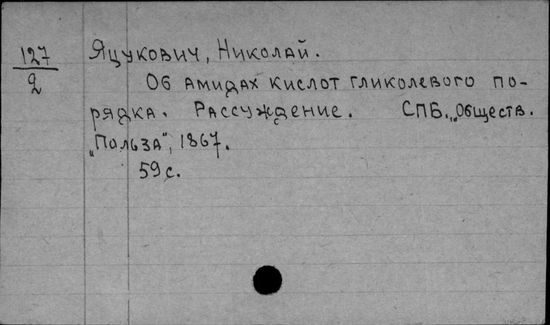 127
2
Яцукович, Николай.
Об амидах кислот гликолевого по-
рядка. Рассуждение. СПБ., „Обществ.
„Польза", 1867.
59 с.